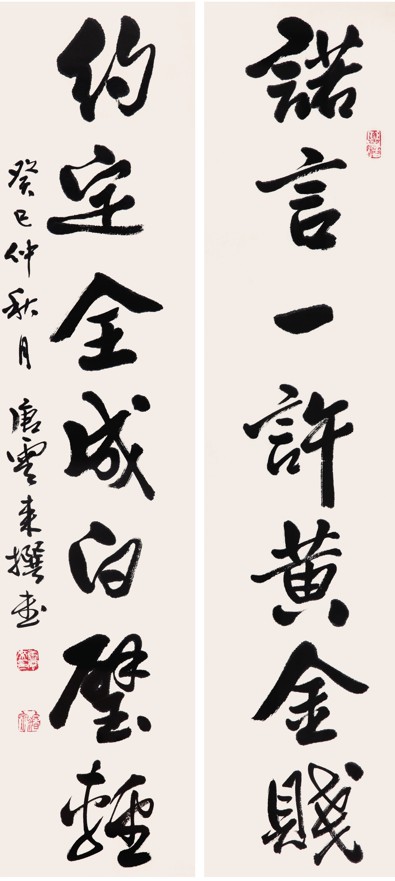 諾言一許黄金賤
約定全成白璧輕
癸巳仲秋月 唐雲来撰書